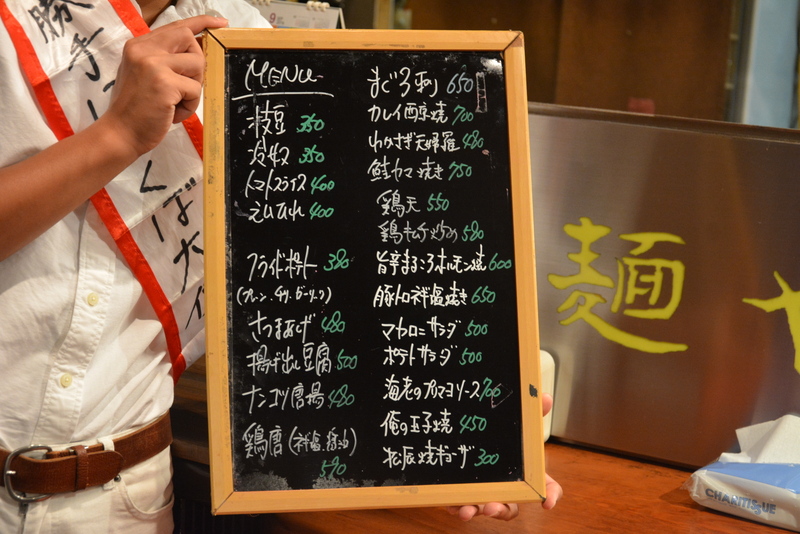 MENU
枝豆 350
冷奴 350
トマトスライス 400
えいひれ 400
フライドポテト 380
(プレーン、チリ、ガーリック)
さつまあげ 480
揚げ出し豆腐 500
ナンコツ唐揚 480
鶏唐(葱塩、醤油)
590
まぐろ刺し 650
カレイ西京焼 700
わかさぎ天婦羅 480
鮭カマ焼き 750
鶏天 550
鶏キムチ炒め 580
旨辛まるごろホルモン焼 600
豚トロ葱塩焼き 650
マカロニサラダ 500
ポテトサラダ 500
海老のプリマヨソース 700
俺の玉子焼 450
焼ギョーザ 300
勝手に
くば大
麺
CHARITISSUE